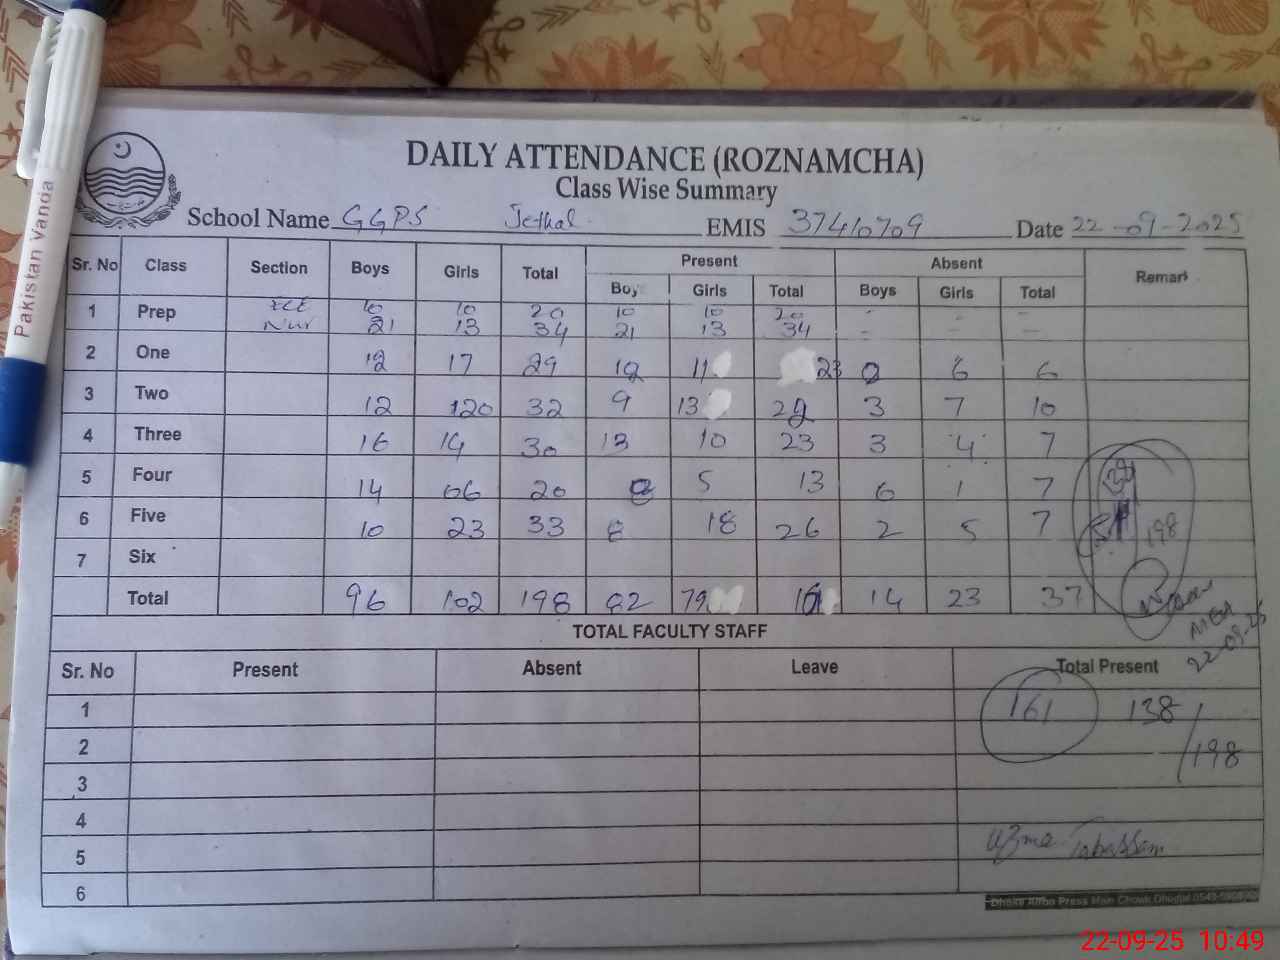 Pakistan Vanda
DAILY ATTENDANCE (ROZNAMCHA)
Class Wise Summary
School Name GGPS Jethal EMIS 37410709 Date 22-09-2025
Sr. No Class Section Boys Girls Total Present Absent Remark
Boys Girls Total Boys Girls Total
1 Prep ECE 10 10 20 10 10 20 - - -
Nur 21 13 34 21 13 34 - - -
2 One 12 17 29 12 11 23 0 6 6
3 Two 12 20 32 9 13 22 3 7 10
4 Three 16 14 30 13 10 23 3 4 7
5 Four 14 06 20 8 5 13 6 1 7
6 Five 10 23 33 8 18 26 2 5 7
7 Six
Total 96 102 198 82 79 161 14 23 37
138
198
MEA
22-09-25
TOTAL FACULTY STAFF
Sr. No Present Absent Leave Total Present
1 161 138/198
2
3
4
5 Uzma Tabassam
6
Main Chowk Dhudial
22-09-25 10:49